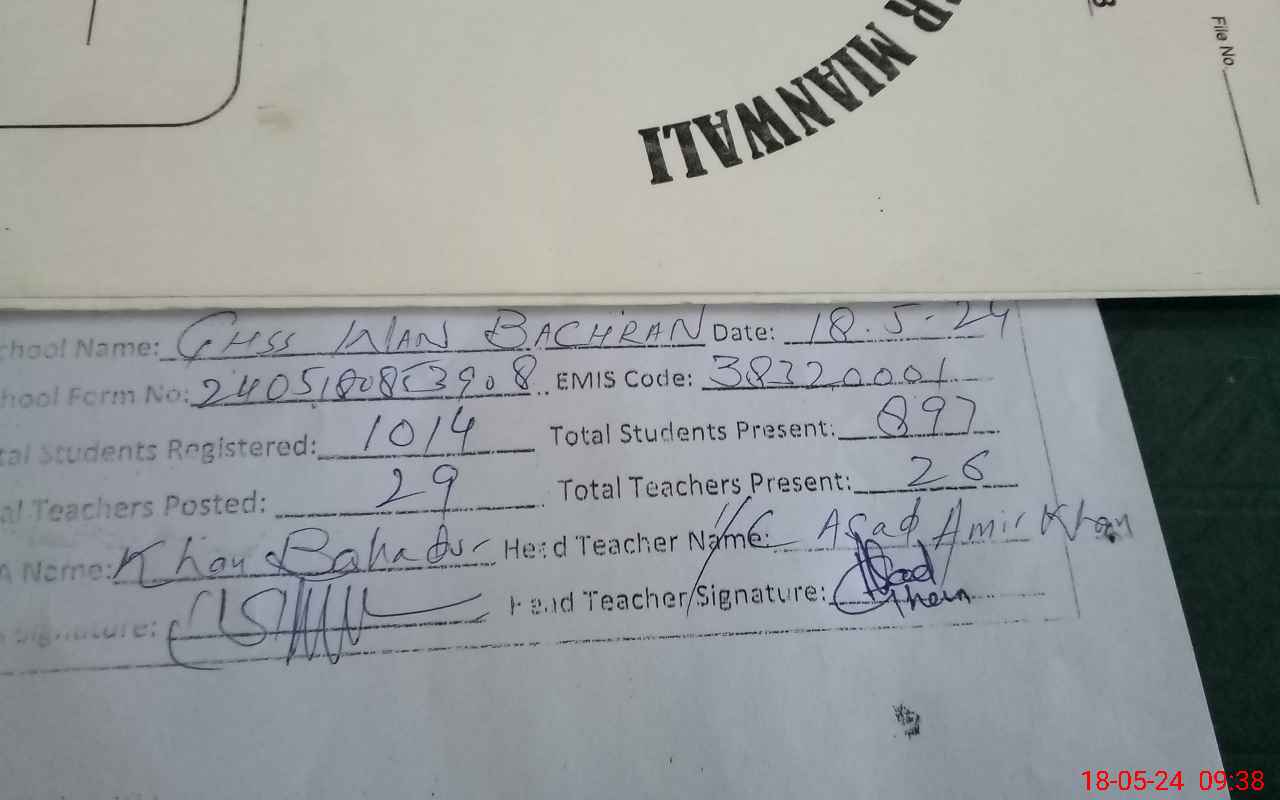 File No.
R MIANWALI
chool Name: GHSS WAN BACHRAN Date: 18.5-24
hool Form No: 2405180853908 EMIS Code: 38320001
tal Students Registered: 1014 Total Students Present: 897
al Teachers Posted: 29 Total Teachers Present: 26
A Name: Khan Bahadur Head Teacher Name: I/C Asad Amir Khan
Signature: Head Teacher Signature: Asad
18-05-24 09:38